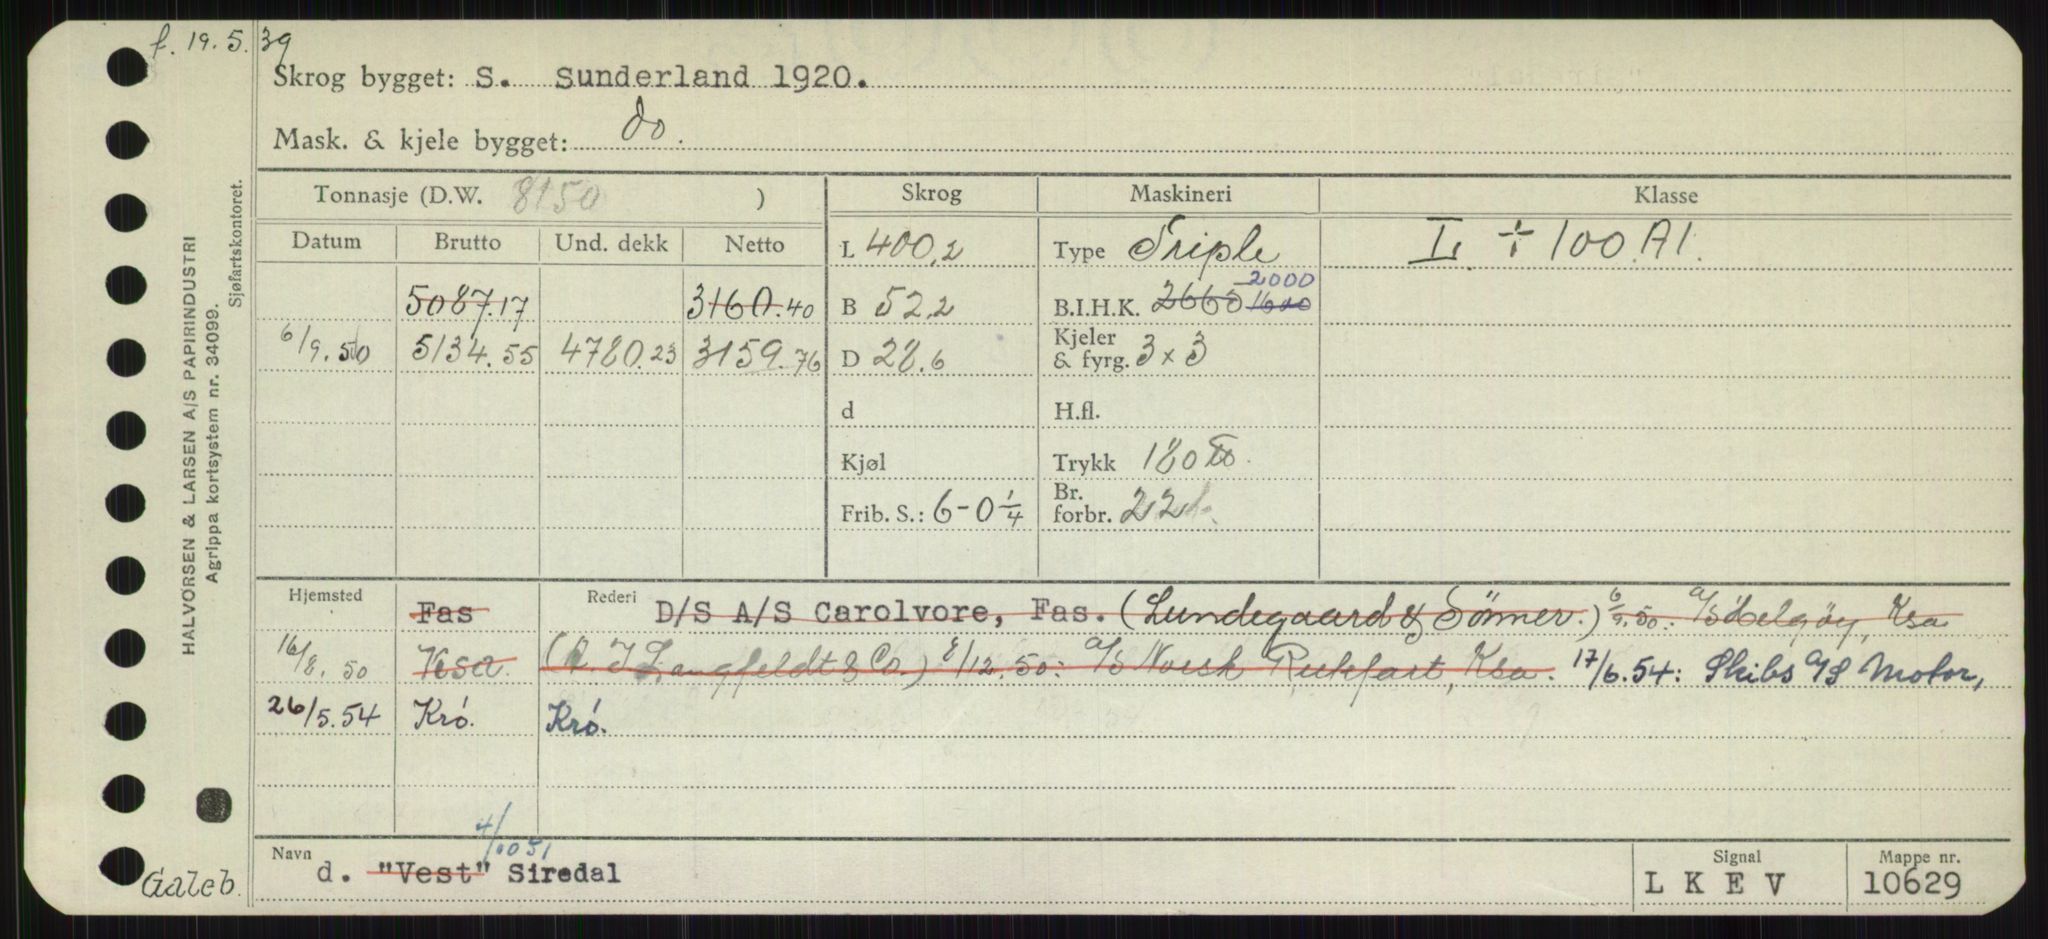 f. 19.5.39
Skrog bygget: S. Sunderland 1920.
Mask. & kjele bygget: do.
Tonnasje (D.W. 8150 )
Skrog
Maskineri
Klasse
Datum Brutto Und. dekk Netto
L 400,2
Type Triple
L. ÷ 100.A1.
5087.17 3160.40
B 52,2
B.I.H.K. 2660 1600 2000
6/9.50 5134.55 4780.23 3159.76
D 28,6
Kjeler
& fyrg. 3 x 3
d
H.fl.
Kjøl
Trykk 180
Frib. S.: 6-0 1/4
Br.
forbr. 22
Hjemsted Fas Rederi D/S A/S Carolvore, Fas. (Lundegaard & Sönner.) 6/9.50: A/S Helgøy, Ksa
16/8.50 Ksa. (A. I. Langfeldt & Co.) 8/12.50: A/S Norsk Rutefart, Ksa. 17/6.54: Skibs A/S Motor,
26/5.54 Krö. Krö.
4/10 51
Navn d. "Vest" Siredal
Signal
LKEV
Mappe nr.
10629
HALVORSEN & LARSEN A/S PAPIRINDUSTRI
Agrippa kortsystem nr. 34099.
Sjøfartskontoret.
Galeb.